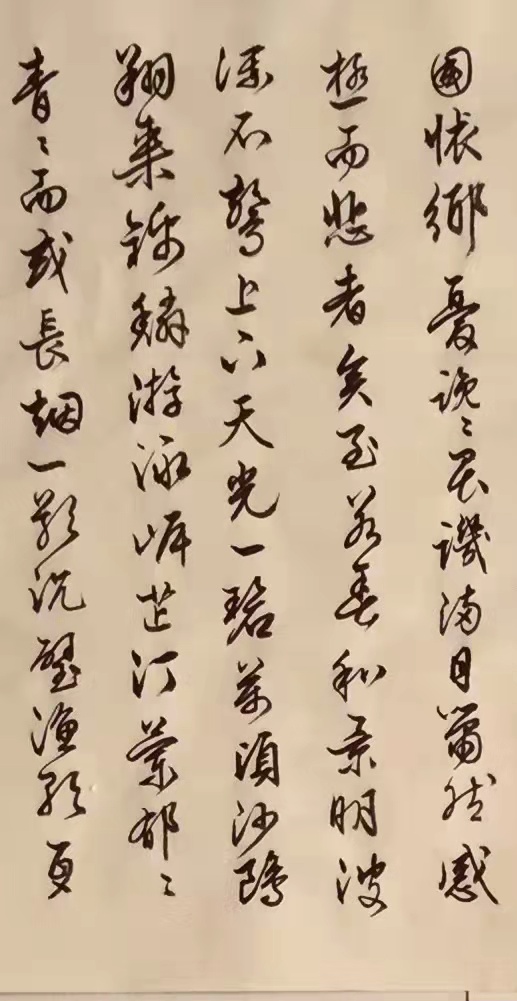 國懷鄉憂讒〻畏譏滿目蕭然感
極而悲者矣至若春和景明波
瀾不驚上下天光一碧萬頃沙鷗
翔集錦鱗游泳岸芷汀蘭郁〻
青〻而或長烟一影沉璧漁歌互